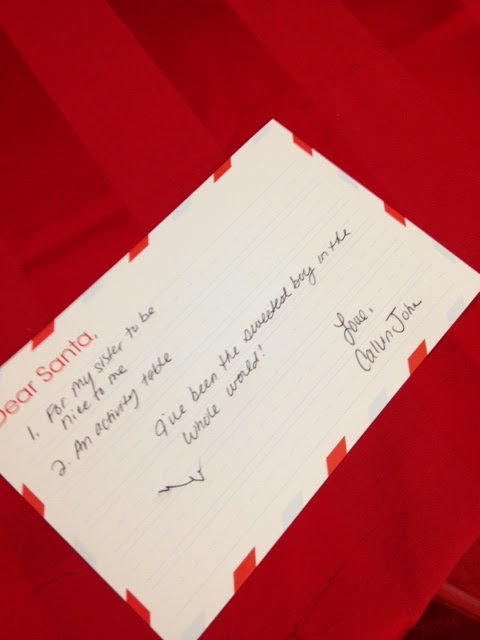 Dear Santa,
1. For my sister to be
nice to me
2. An activity table
I've been the sweetest boy in the
whole world!
Love,
Calvin John